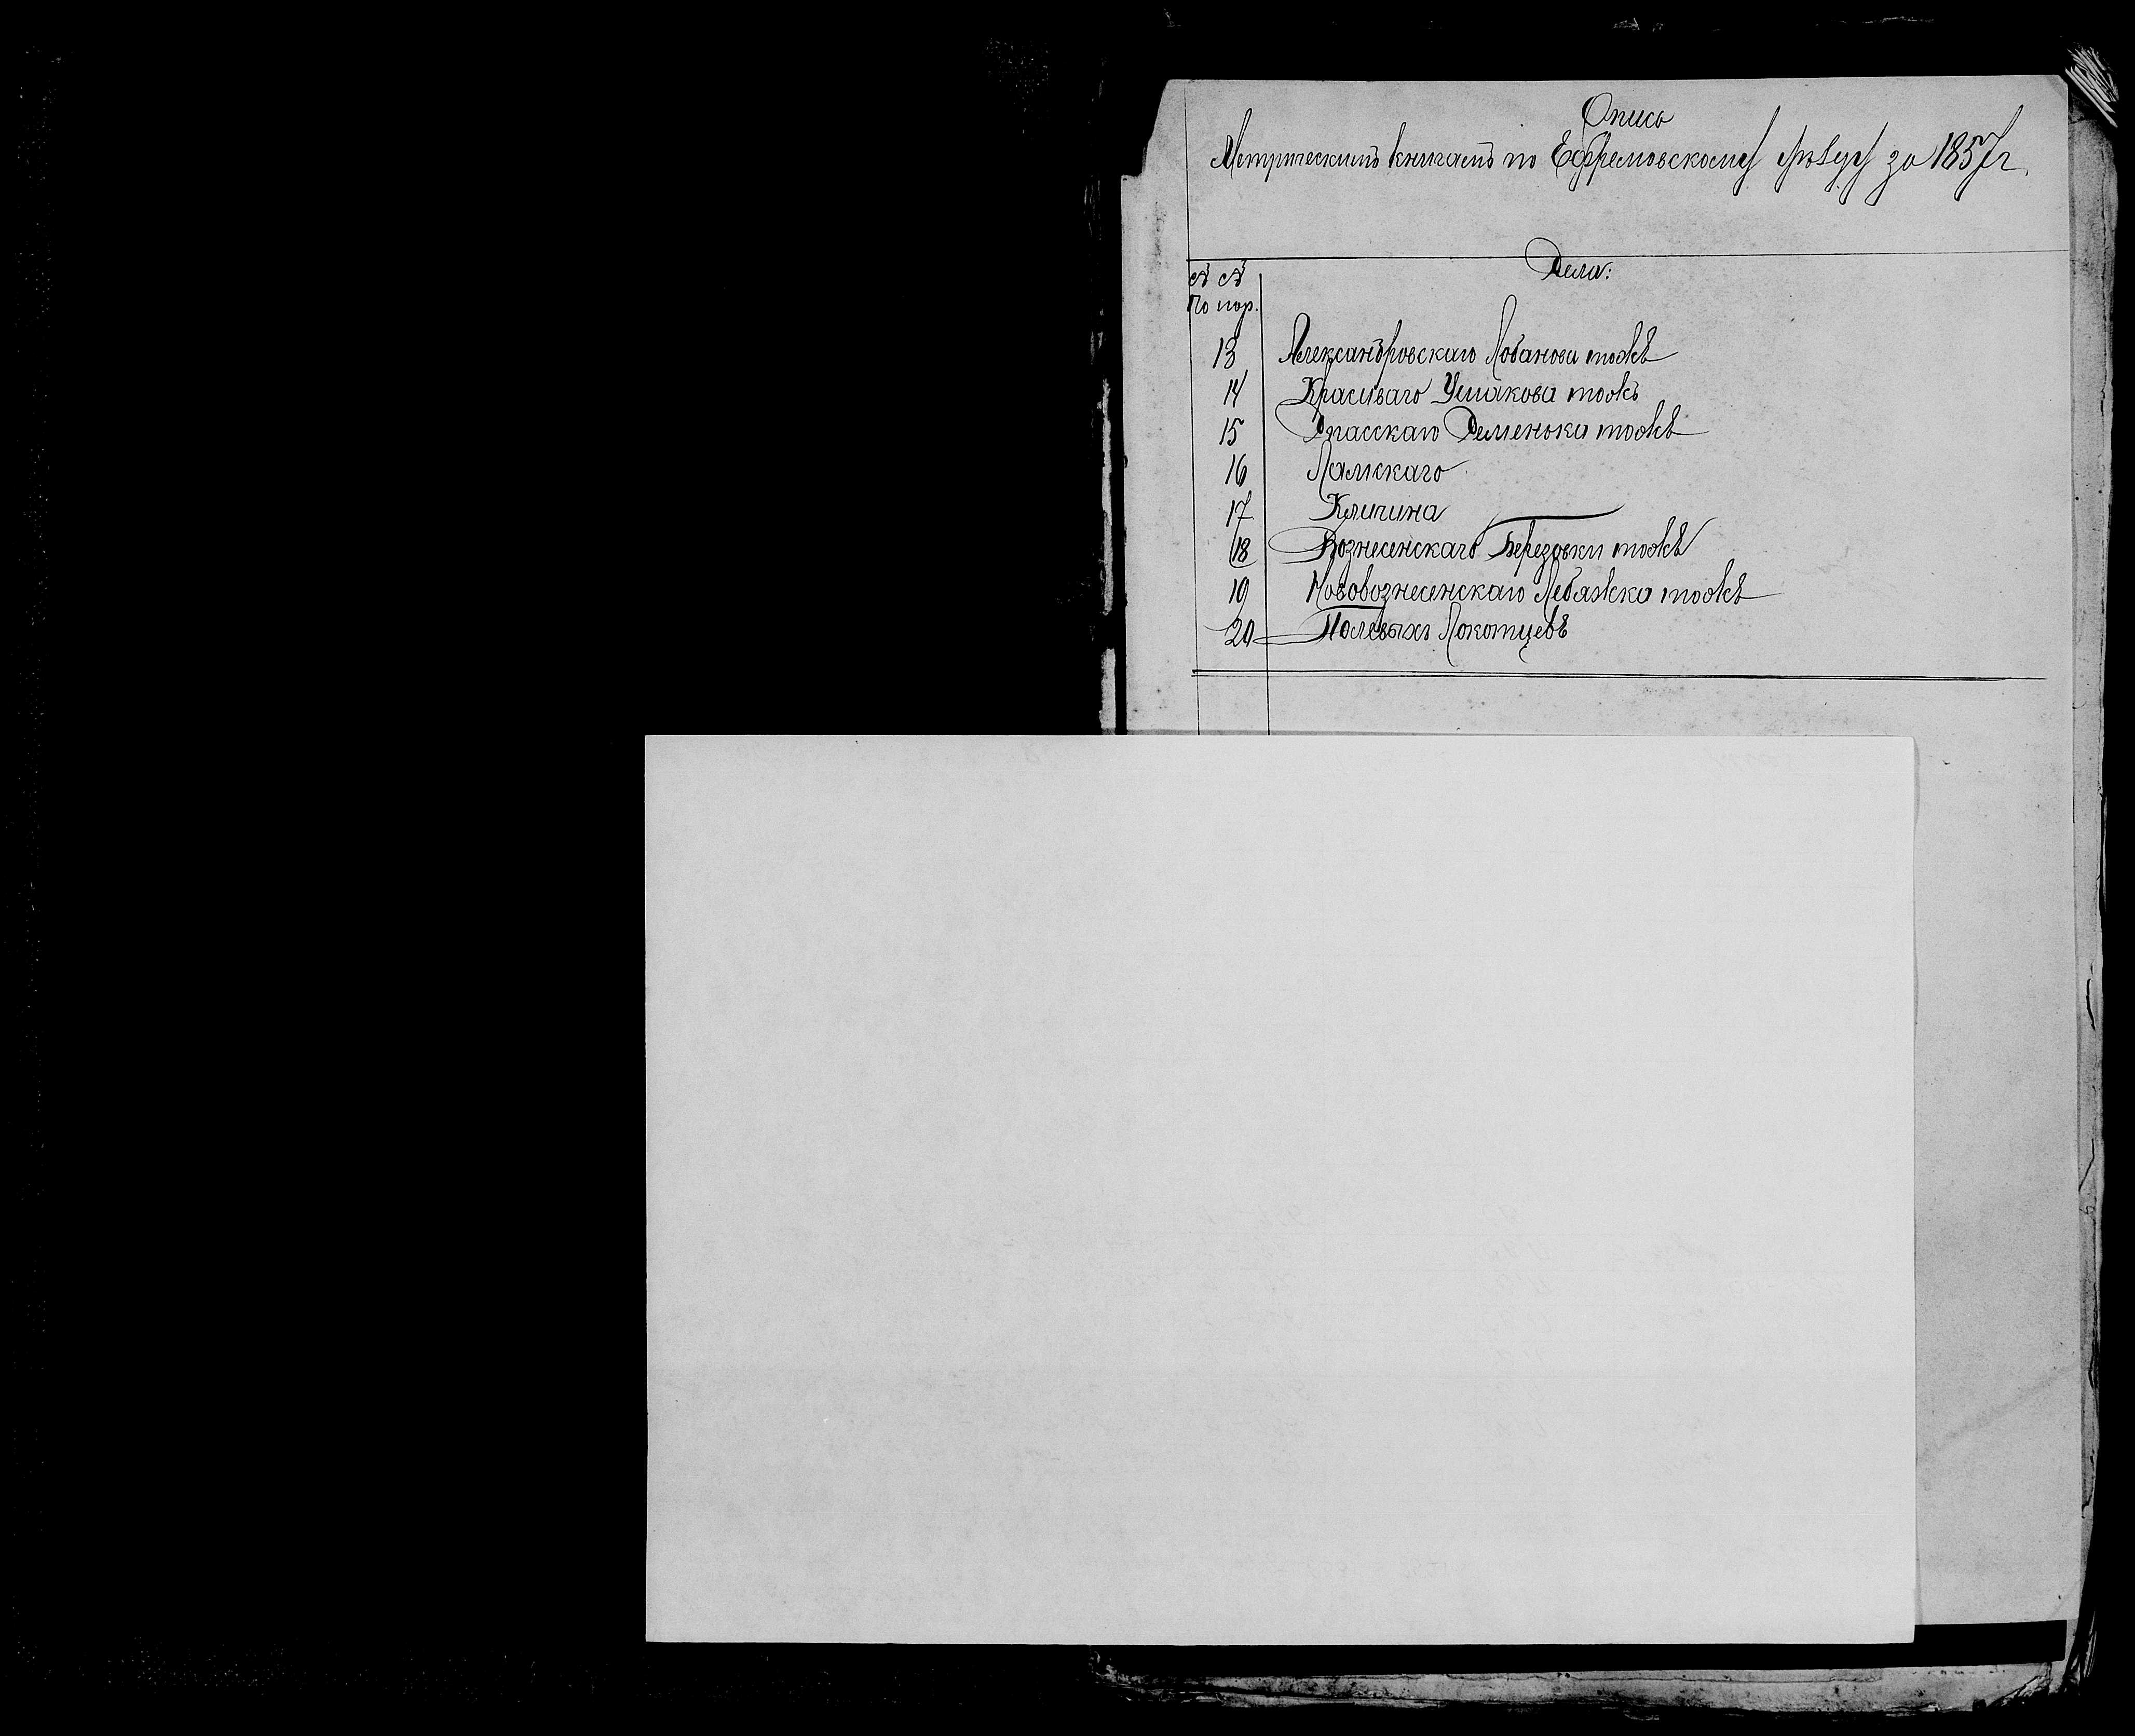 Опись
Метрическимъ книгамъ по Ефремовскому уѣзду за 1857 г.
Дела:
№ №
По пор.
13 Александровскаго Лобанова тожъ
14 Красиваго Ушакова тожъ
15 Спасскаго Деменьки тожъ
16 Ламскаго
17 Кличина
18 Вознесенскаго Березовки тожъ
19 Нововознесенскаго Лебяжка тожъ
20 Полевыхъ Локотцевъ